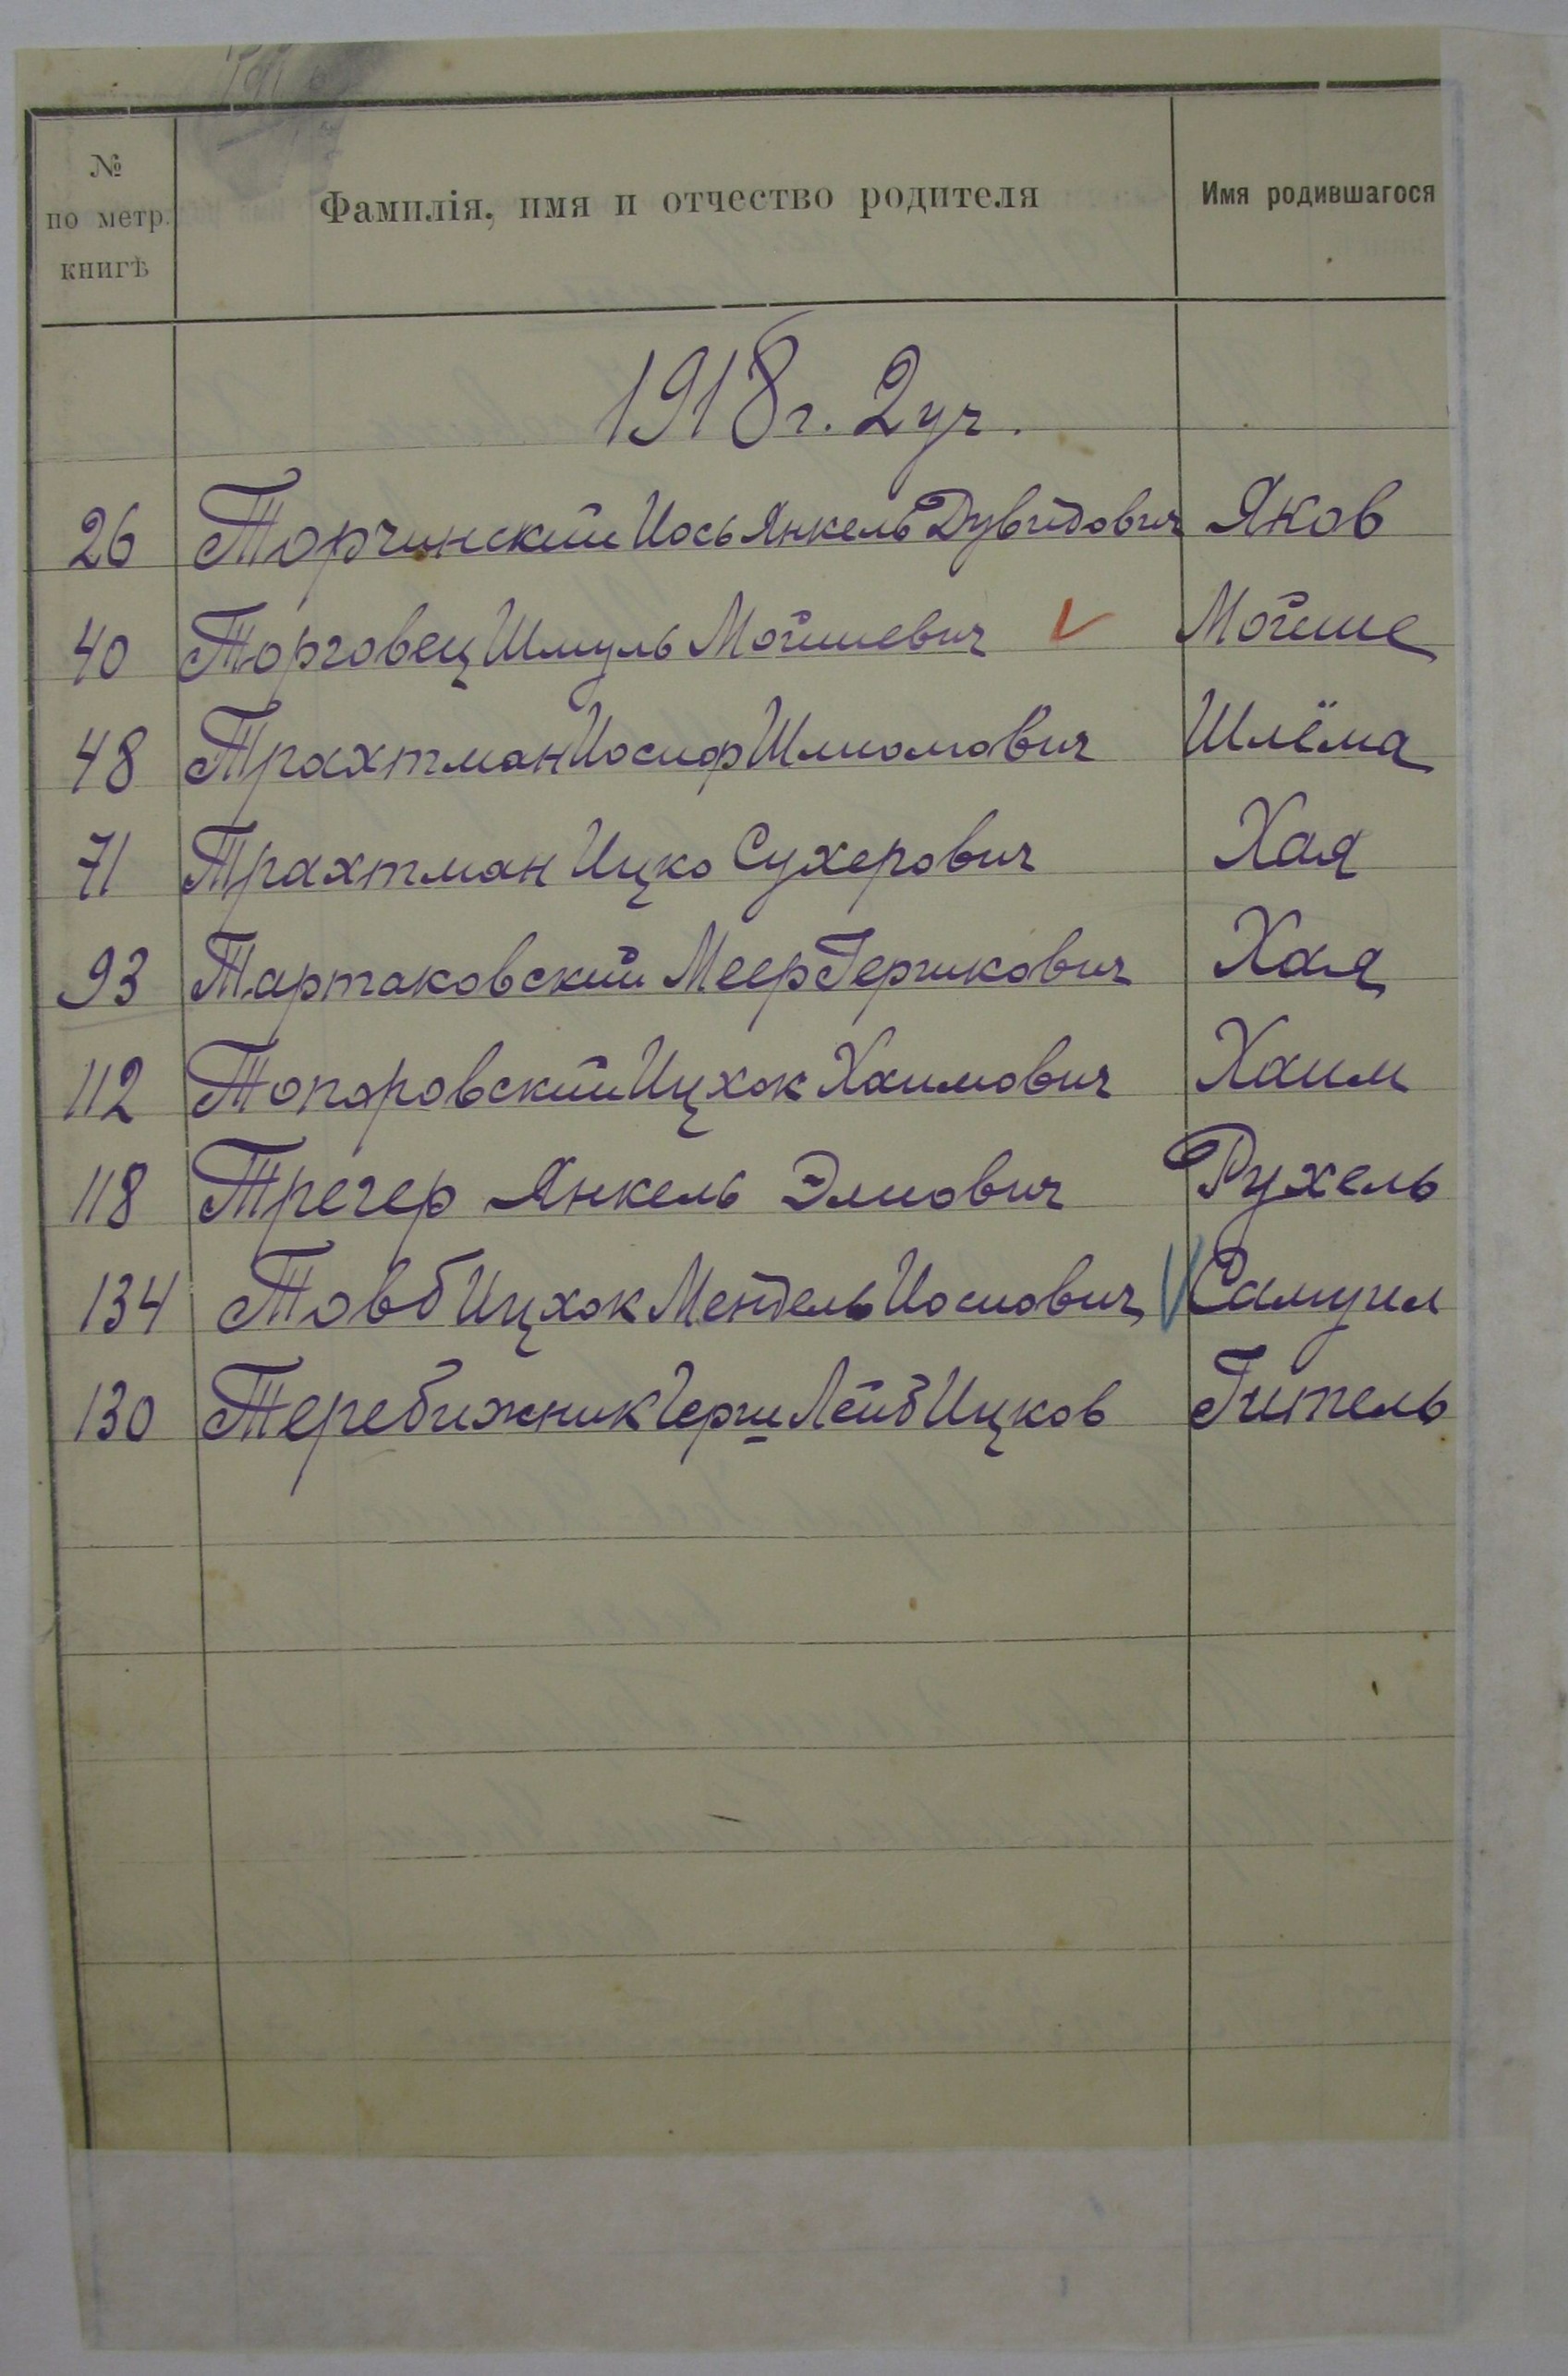 № по метр. книгѣ | Фамилія, имя и отчество родителя | Имя родившагося
1918 г. 2 уч.
26 Торчинский Иось Янкель Дувидович Яков
40 Торговец Шмуль Мойшевич Мойше
48 Трахтман Иосиф Шлиомович Шлёма
71 Трахтман Ицко Сухерович Хая
93 Тартаковский Меер Гершкович Хая
112 Топоровский Ицхок Хаимович Хаим
118 Трегер Янкель Элиович Рухель
134 Товб Ицхок Мендель Иосиович Самуил
130 Теребижник Герш Лейб Ицков Гитель